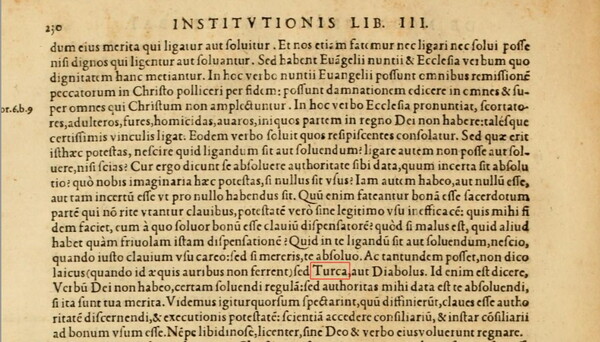 230 INSTITVTIONIS LIB. III.
dum eius merita qui ligatur aut soluitur. Et nos etiam fatemur nec ligari nec solui posse
nisi dignos qui ligentur aut soluantur. Sed habent Euãgelii nuntii & Ecclesia verbum quo
dignitatem hanc metiantur. In hoc verbo nuntii Euangelii possunt omnibus remissionẽ
peccatorum in Christo polliceri per fidem: possunt damnationem edicere in omnes & su-
or.6.b.9 per omnes qui Christum non amplectuntur. In hoc verbo Ecclesia pronuntiat, scortato-
res, adulteros, fures, homicidas, auaros, iniquos partem in regno Dei non habere: talésque
certissimis vinculis ligat. Eodem verbo soluit quos resipiscentes consolatur. Sed quæ erit
isthæc potestas, nescire quid ligandum sit aut soluendum? ligare autem non posse aut sol-
uere, nisi scias? Cur ergo dicunt se absoluere authoritate sibi data, quum incerta sit absolu
tio? quò nobis imaginaria hæc potestas, si nullus sit vsus? Iam autem habeo, aut nullũ esse,
aut tam incertũ esse vt pro nullo habendus sit. Quũ enim fateantur bonã esse sacerdotum
partẽ qui nõ ritè vtantur clauibus, potestatẽ verò sine legitimo vsu inefficacẽ: quis mihi fi
dem faciet, eum à quo soluor bonũ esse clauiũ dispensatorẽ? quòd si malus est, quid aliud
habet quàm friuolam istam dispensationẽ? Quid in te ligandũ sit aut soluendum, nescio,
quando iusto clauium vsu careo: sed si mereris, te absoluo. Ac tantundem posset, non dico
laicus (quando id æquis auribus non ferrent) sed Turca, aut Diabolus. Id enim est dicere,
Verbũ Dei non habeo, certam soluendi regulã: sed authoritas mihi data est te absoluendi,
si ita sunt tua merita. Videmus igitur quorsum spectarint, quũ diffinierũt, claues esse autho
ritatẽ discernendi, & executionis potestatẽ: scientiã accedere consiliarii, & instar cõsiliarii
ad bonum vsum esse. Nẽpe libidinosè, licenter, sine Deo & verbo eius voluerunt regnare.